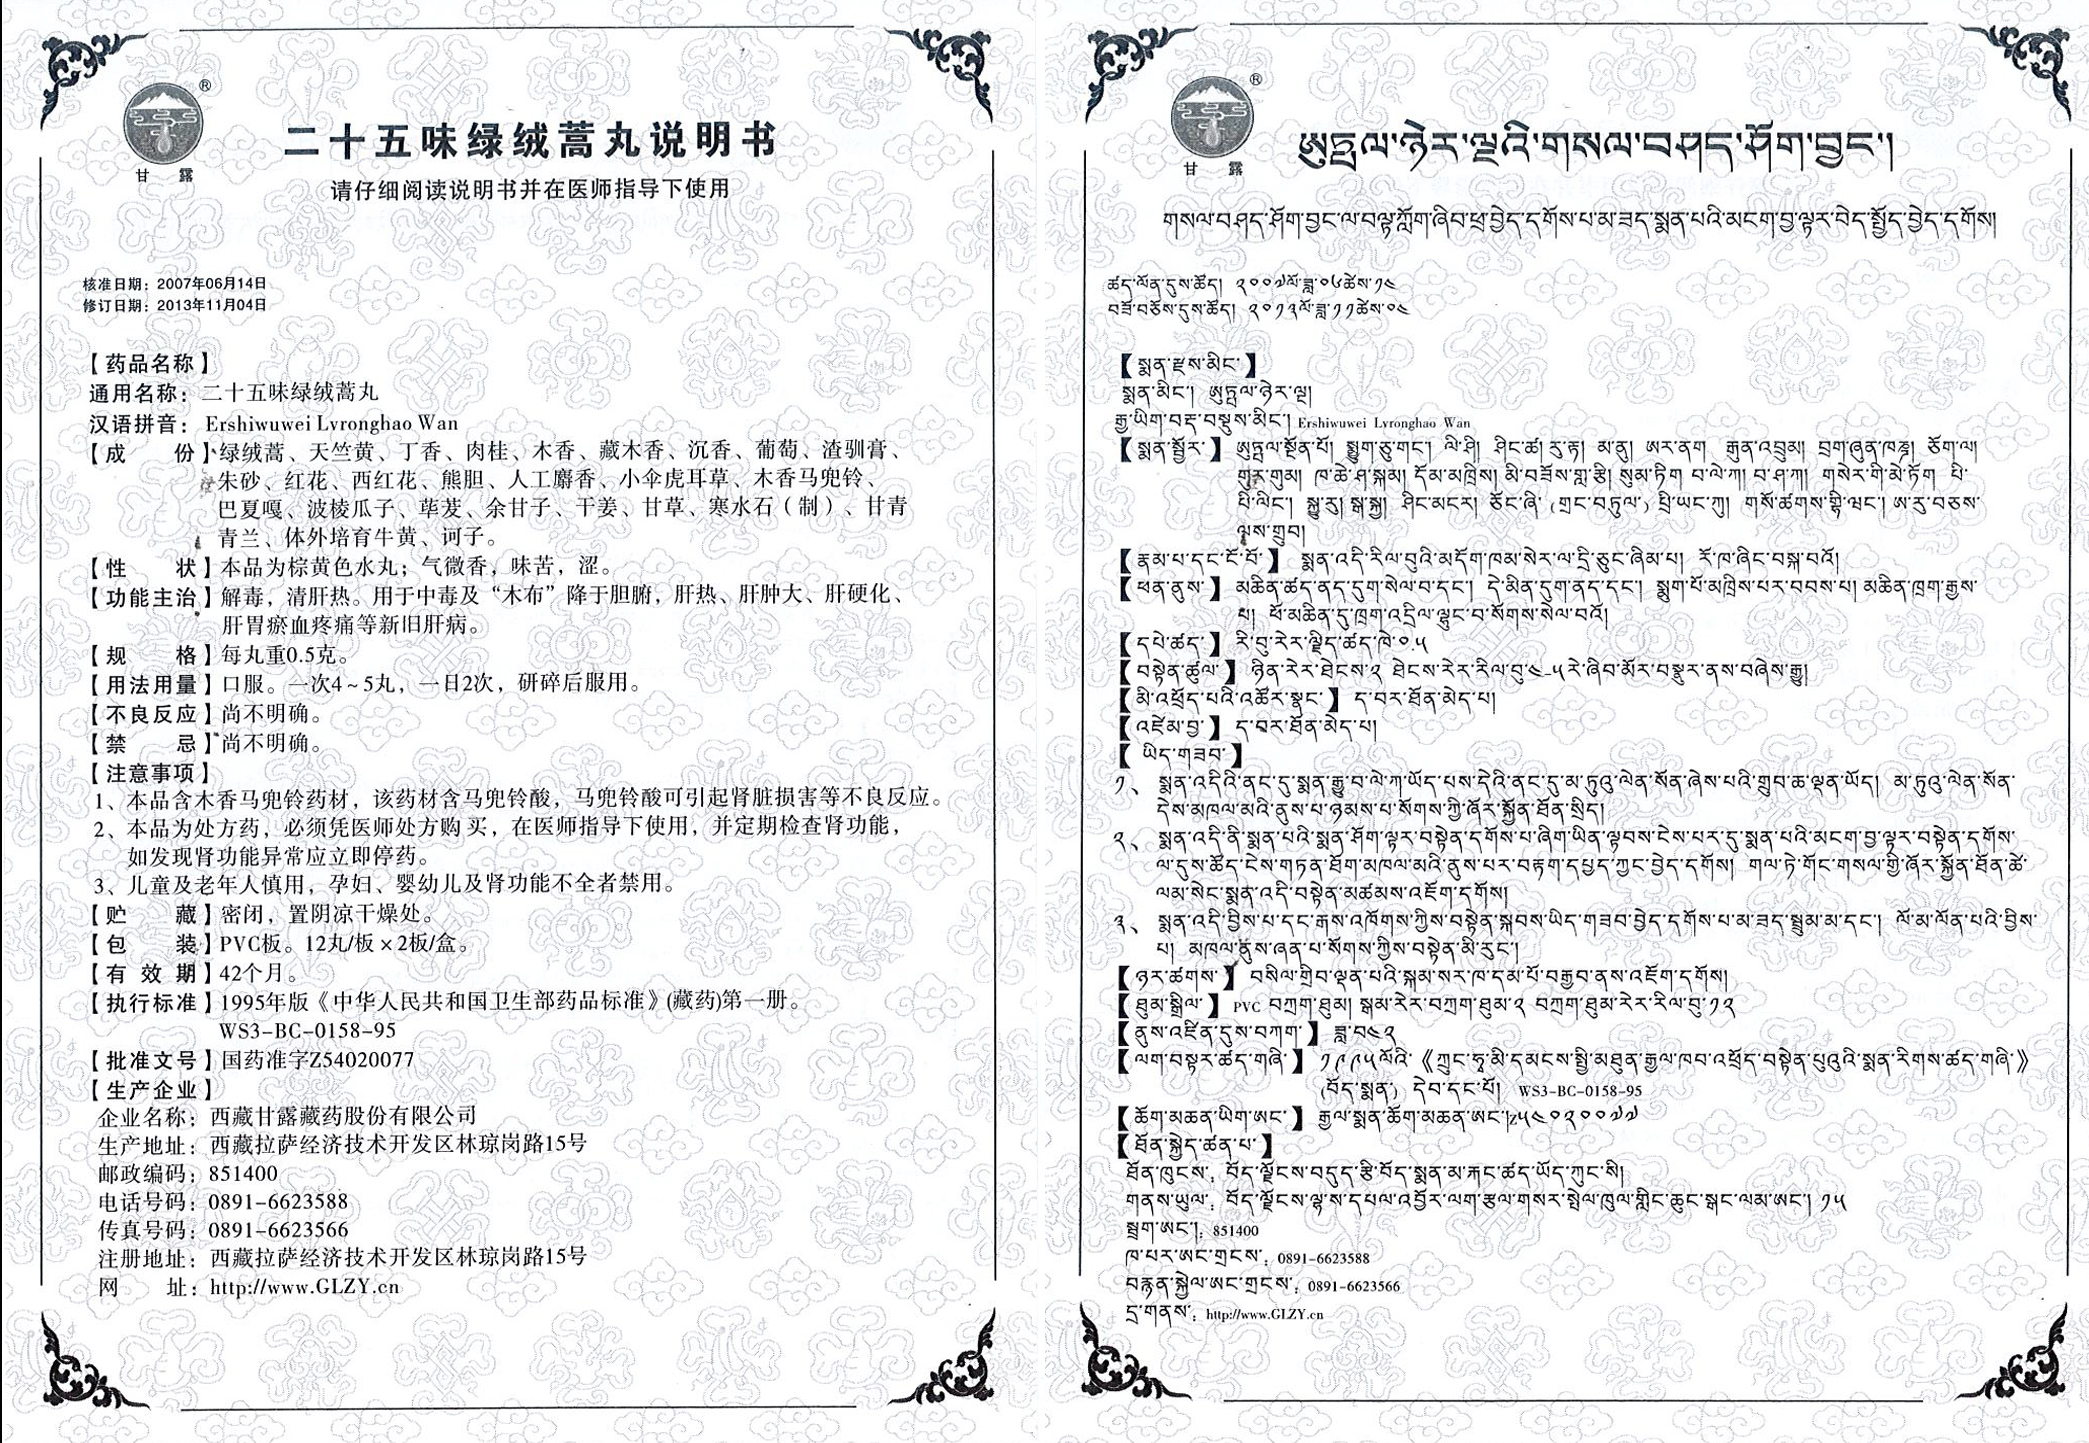 ®
甘 露
二十五味绿绒蒿丸说明书
请仔细阅读说明书并在医师指导下使用
核准日期：2007年06月14日
修订日期：2013年11月04日
【药品名称】
通用名称：二十五味绿绒蒿丸
汉语拼音：Ershiwuwei Lvronghao Wan
【成 份】绿绒蒿、天竺黄、丁香、肉桂、木香、藏木香、沉香、葡萄、渣驯膏、
朱砂、红花、西红花、熊胆、人工麝香、小伞虎耳草、木香马兜铃、
巴夏嘎、波棱瓜子、荜茇、余甘子、干姜、甘草、寒水石（制）、甘青
青兰、体外培育牛黄、诃子。
【性 状】本品为棕黄色水丸；气微香，味苦，涩。
【功能主治】解毒，清肝热。用于中毒及“木布”降于胆腑，肝热、肝肿大、肝硬化、
肝胃瘀血疼痛等新旧肝病。
【规 格】每丸重0.5克。
【用法用量】口服。一次4~5丸，一日2次，研碎后服用。
【不良反应】尚不明确。
【禁 忌】尚不明确。
【注意事项】
1、本品含木香马兜铃药材，该药材含马兜铃酸，马兜铃酸可引起肾脏损害等不良反应。
2、本品为处方药，必须凭医师处方购买，在医师指导下使用，并定期检查肾功能，
如发现肾功能异常应立即停药。
3、儿童及老年人慎用，孕妇、婴幼儿及肾功能不全者禁用。
【贮 藏】密闭，置阴凉干燥处。
【包 装】PVC板。12丸/板×2板/盒。
【有 效 期】42个月。
【执行标准】1995年版《中华人民共和国卫生部药品标准》(藏药)第一册。
WS3-BC-0158-95
【批准文号】国药准字Z54020077
【生产企业】
企业名称：西藏甘露藏药股份有限公司
生产地址：西藏拉萨经济技术开发区林琼岗路15号
邮政编码：851400
电话号码：0891-6623588
传真号码：0891-6623566
注册地址：西藏拉萨经济技术开发区林琼岗路15号
网 址：http://www.GLZY.cn
®
甘 露
ཨུཏྤལ་ཉེར་ལྔའི་གསལ་བཤད་ཤོག་བྱང་།
གསལ་བཤད་ཤོག་བྱང་ལ་བལྟ་ཀློག་ཞིབ་ཕྲ་བྱེད་དགོས་པ་མ་ཟད་སྨན་པའི་མངག་བྱ་ལྟར་བེད་སྤྱོད་བྱེད་དགོས།
ཚད་ལོན་དུས་ཚོད། ༢༠༠༧ལོ་ཟླ་༠༦ཚེས་༡༤
བཟོ་བཅོས་དུས་ཚོད། ༢༠༡༣ལོ་ཟླ་༡༡ཚེས་༠༤
【སྨན་རྫས་མིང་】
སྨན་མིང་། ཨུཏྤལ་ཉེར་ལྔ།
རྒྱ་ཡིག་བརྡ་བསྡུས་མིང་། Ershiwuwei Lvronghao Wan
【སྨན་སྦྱོར་】 ཨུཏྤལ་སྔོན་པོ། སྨྱུག་ཅུ་གང་། ལི་ཤི། ཤིང་ཚ། རུ་རྟ། མ་ནུ། ཨར་ནག རྒུན་འབྲུམ། བྲག་ཞུན་ཁཎྜ། ཅོག་ལ།
གུར་གུམ། ཁ་ཆེ་ཤ་སྐམ། དོམ་མཁྲིས། མི་བཟོས་གླ་རྩི། སུམ་ཏིག བ་ལེ་ཀ། བ་ཤ་ཀ། གསེར་གྱི་མེ་ཏོག པི་
པི་ལིང་། སྐྱུ་རུ། སྒ་སྐྱ། ཤིང་མངར། ཅོང་ཞི་ (གྲང་བཏུལ་) པྲི་ཡང་ཀུ། གསོ་ཚགས་གྷི་ཝང་། ཨ་རུ་བཅས་
ལྷས་གྲུབ།
【རྣམ་པ་དང་ངོ་བོ་】 སྨན་འདི་རིལ་བུའི་མདོག་ཁམ་སེར་ལ་དྲི་ཅུང་ཞིམ་པ། རོ་ཁ་ཞིང་བསྐ་བའོ།
【ཕན་ནུས་】 མཆིན་ཚད་ནད་དུག་སེལ་བ་དང་། དེ་མིན་དུག་ནད་དང་། སྨུག་པོ་མཁྲིས་པར་བབས་པ། མཆིན་ཁྲག་རྒྱས་
པ། ཕོ་མཆིན་དུ་ཁྲག་འདྲིལ་ལྷུང་བ་སོགས་སེལ་བའོ།
【དཔེ་ཚད་】 རི་བུ་རེར་ལྗིད་ཚད་ཁེ་༠.༥
【བསྟེན་ཚུལ་】 ཉིན་རེར་ཐེངས་༢ ཐེངས་རེར་རིལ་བུ་༤-༥རེ་ཞིབ་མོར་བསྣུར་ནས་བཞེས་རྒྱུ།
【མི་འཕྲོད་པའི་འཚོར་སྣང་】 ད་བར་ཐོན་མེད་པ།
【འཛེམ་བྱ་】 ད་བར་ཐོན་མེད་པ།
【ཡིད་གཟབ་】
༡、 སྨན་འདིའི་ནང་དུ་སྨན་རྒྱུ་བ་ལེ་ཀ་ཡོད་པས་དེའི་ནང་དུ་མ་ཏུའུ་ལེན་སོན་ཞེས་པའི་གྲུབ་ཆ་ལྡན་ཡོད། མ་ཏུའུ་ལེན་སོན་
དེས་མཁལ་མའི་ནུས་པ་ཉམས་པ་སོགས་ཀྱི་ཞོར་སྐྱོན་ཐོན་སྲིད།
༢、 སྨན་འདི་ནི་སྨན་པའི་སྨན་ཤོག་ལྟར་བསྟེན་དགོས་པ་ཞིག་ཡིན་ལྟབས་ངེས་པར་དུ་སྨན་པའི་མངག་བྱ་ལྟར་བསྟེན་དགོས་
ལ་དུས་ཚོད་ངེས་གཏན་ཐོག་མཁལ་མའི་ནུས་པར་བརྟག་དཔྱད་ཀྱང་བྱེད་དགོས། གལ་ཏེ་གོང་གསལ་གྱི་ཞོར་སྐྱོན་ཐོན་ཚེ་
ལམ་སེང་སྨན་འདི་བསྟེན་མཚམས་འཇོག་དགོས།
༣、 སྨན་འདི་བྱིས་པ་དང་རྒས་འཁོགས་ཀྱིས་བསྟེན་སྐབས་ཡིད་གཟབ་བྱེད་དགོས་པ་མ་ཟད་སྦྲུམ་མ་དང་། ལོ་མ་ལོན་པའི་བྱིས་
པ། མཁལ་ནུས་ཞན་པ་སོགས་ཀྱིས་བསྟེན་མི་རུང་།
【ཉར་ཚགས་】 བསིལ་གྲིབ་ལྡན་པའི་སྐམ་སར་ཁ་དམ་པོ་བརྒྱབ་ནས་འཇོག་དགོས།
【ཐུམ་སྒྲིལ་】 PVC བཀྲག་ཐུམ། སྒམ་རེར་བཀྲག་ཐུམ་༢ བཀྲག་ཐུམ་རེར་རིལ་བུ་༡༢
【ནུས་འཛིན་དུས་བཀག་】 ཟླ་བ༤༢
【ལག་བསྟར་ཚད་གཞི་】 ༡༩༩༥ལོའི་《ཀྲུང་ཧྭ་མི་དམངས་སྤྱི་མཐུན་རྒྱལ་ཁབ་འཕྲོད་བསྟེན་པུའུའི་སྨན་རིགས་ཚད་གཞི་》
(བོད་སྨན་) དེབ་དང་པོ། WS3-BC-0158-95
【ཆོག་མཆན་ཡིག་ཨང་】 རྒྱལ་སྨན་ཆོག་མཆན་ཨང་།Z༥༤༠༢༠༠༧༧
【ཐོན་སྐྱེད་ཚན་པ་】
ཐོན་ཁུངས་: བོད་ལྗོངས་བདུད་རྩི་བོད་སྨན་མ་རྐང་ཚད་ཡོད་ཀུང་སི།
གནས་ཡུལ་: བོད་ལྗོངས་ལྷ་ས་དཔལ་འབྱོར་ལག་རྩལ་གསར་སྤེལ་ཁུལ་གླིང་ཆུང་སྒང་ལམ་ཨང་། ༡༥
སྦྲག་ཨང་།: 851400
ཁ་པར་ཨང་གྲངས་: 0891-6623588
བརྙན་སྐྱེལ་ཨང་གྲངས་: 0891-6623566
དྲ་གནས་: http://www.GLZY.cn